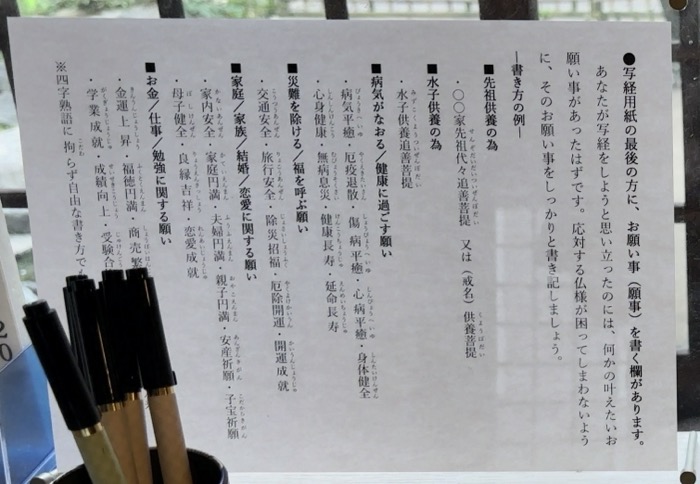 ●写経用紙の最後の方に、お願い事（願事）を書く欄があります。
あなたが写経をしようと思い立ったのには、何かの叶えたいお
願い事があったはずです。応対する仏様が困ってしまわないよう
に、そのお願い事をしっかりと書き記しましょう。
―書き方の例―
■先祖供養の為
・〇〇家先祖代々追善菩提　又は（戒名）供養菩提
■水子供養の為
・水子供養追善菩提
■病気がなおる／健康に過ごす願い
・病気平癒・厄疫退散・傷病平癒・心病平癒・身体健全
・心身健康・無病息災・健康長寿・延命長寿
■災難を除ける／福を呼ぶ願い
・交通安全・旅行安全・除災招福・厄除開運・開運成就
■家庭／家族／結婚／恋愛に関する願い
・家内安全・家庭円満・夫婦円満・親子円満・安産祈願・子宝祈願
・母子健全・良縁吉祥・恋愛成就
■お金／仕事／勉強に関する願い
・金運上昇・福徳円満・商売繁
・学業成就・成績向上・受験合
※四字熟語に拘らず自由な書き方でも
20